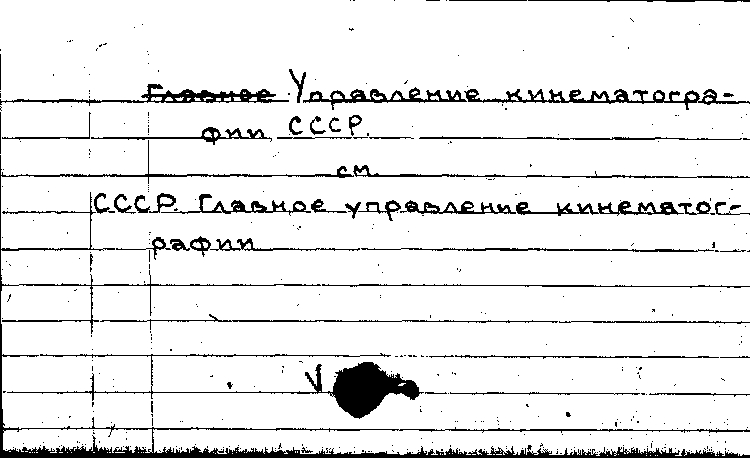 Главное Управление кинематогра-
фии СССР.
см.
СССР. Главное управление кинематог-
рафии
V